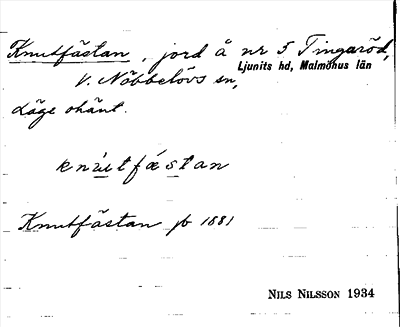 Knutfästan, jord å nr 5 Tingaröd,
Ljunits hd, Malmöhus län
V. Nöbbelövs sn,
Läge okänt.
knùtfæ̀stan
Knutfästan jb 1881
NILS NILSSON 1934